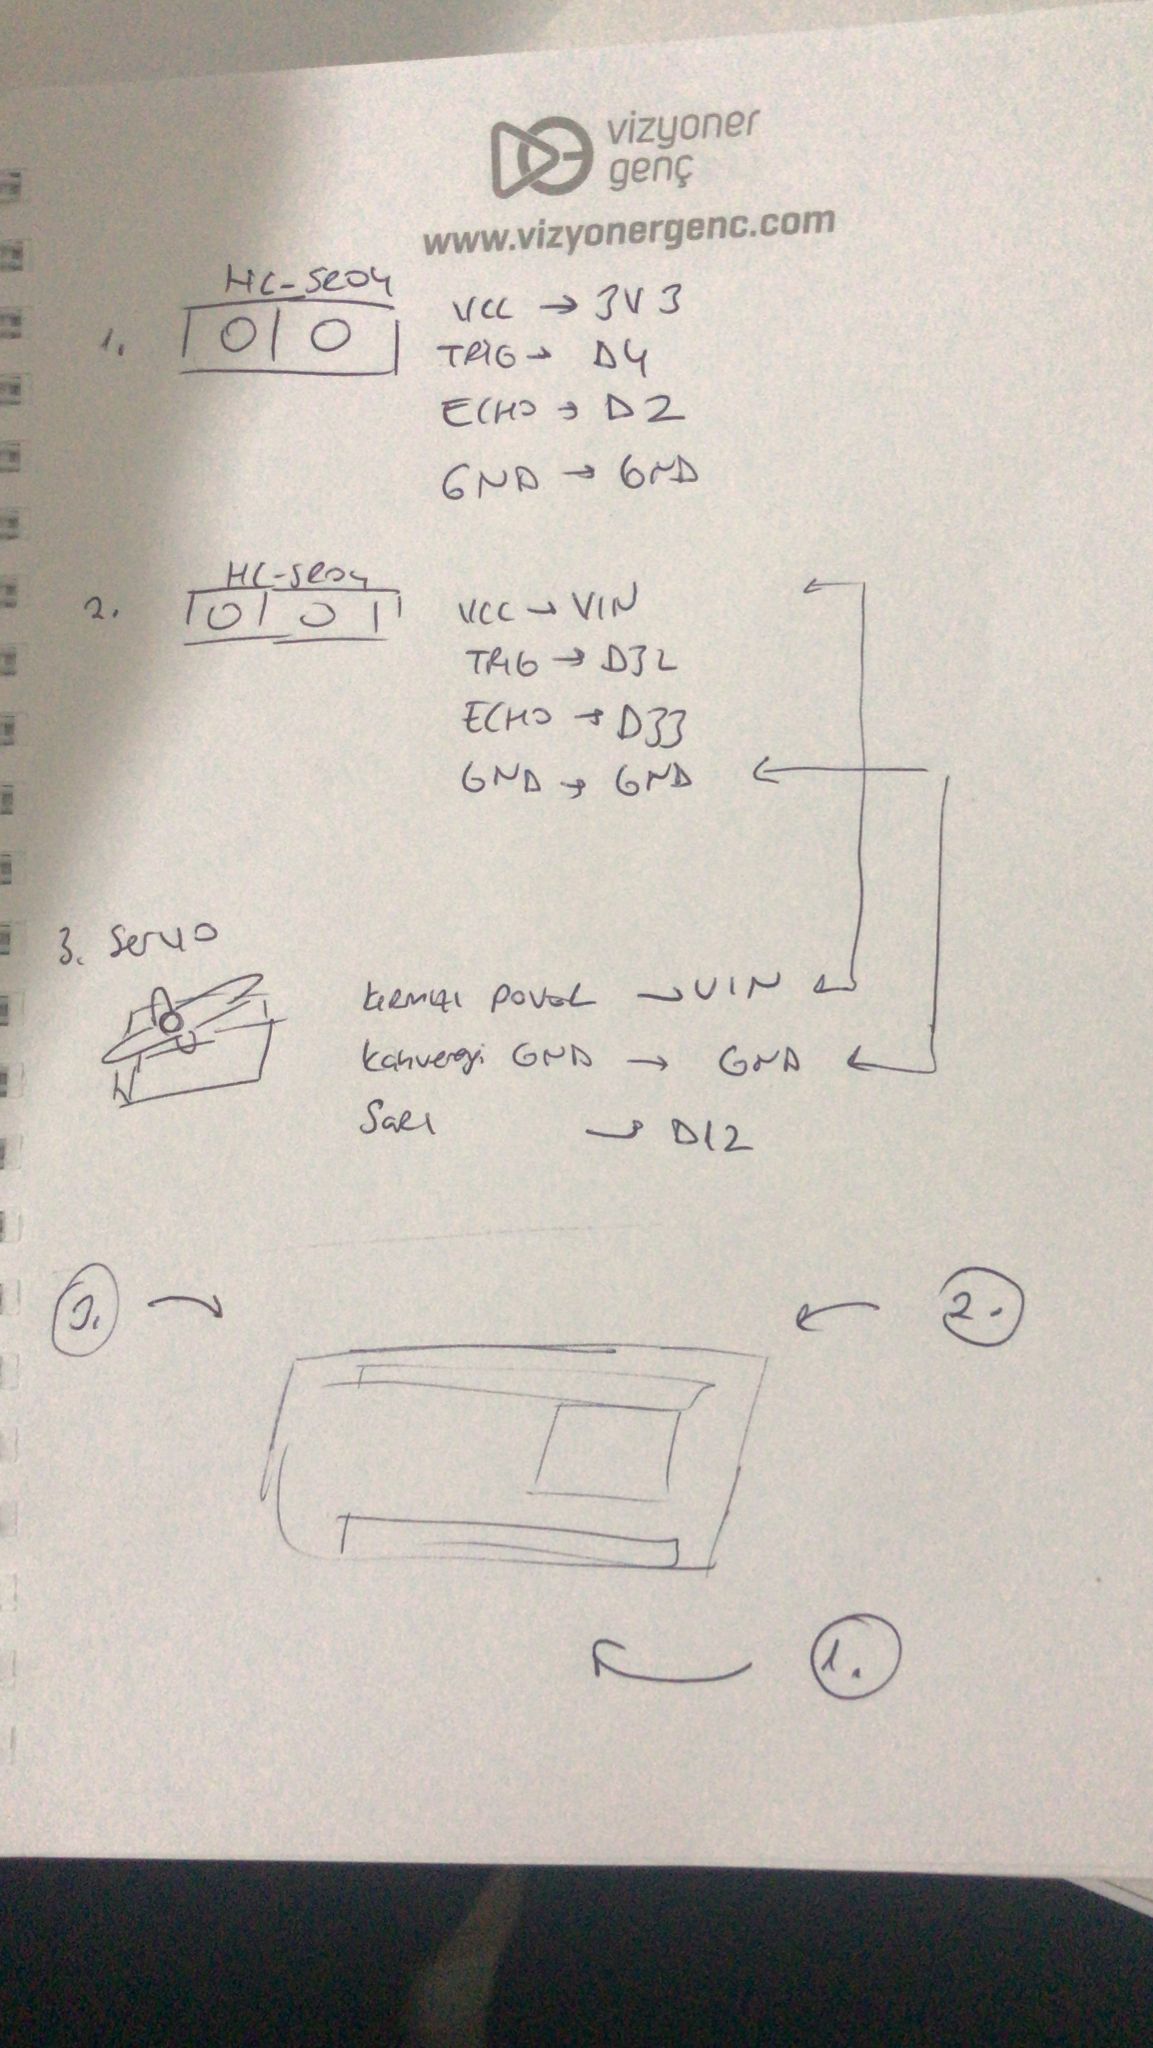 vizyoner
genç
www.vizyonergenc.com
HC-SR04
1.
VCC → 3V3
TRIG → D4
ECHO → D2
GND → GND
HC-SR04
2.
VCC → VIN
TRIG → D32
ECHO → D33
GND → GND
3. Servo
kırmızı power → VIN
kahverengi GND → GND
Sarı → D12
3.
2.
1.